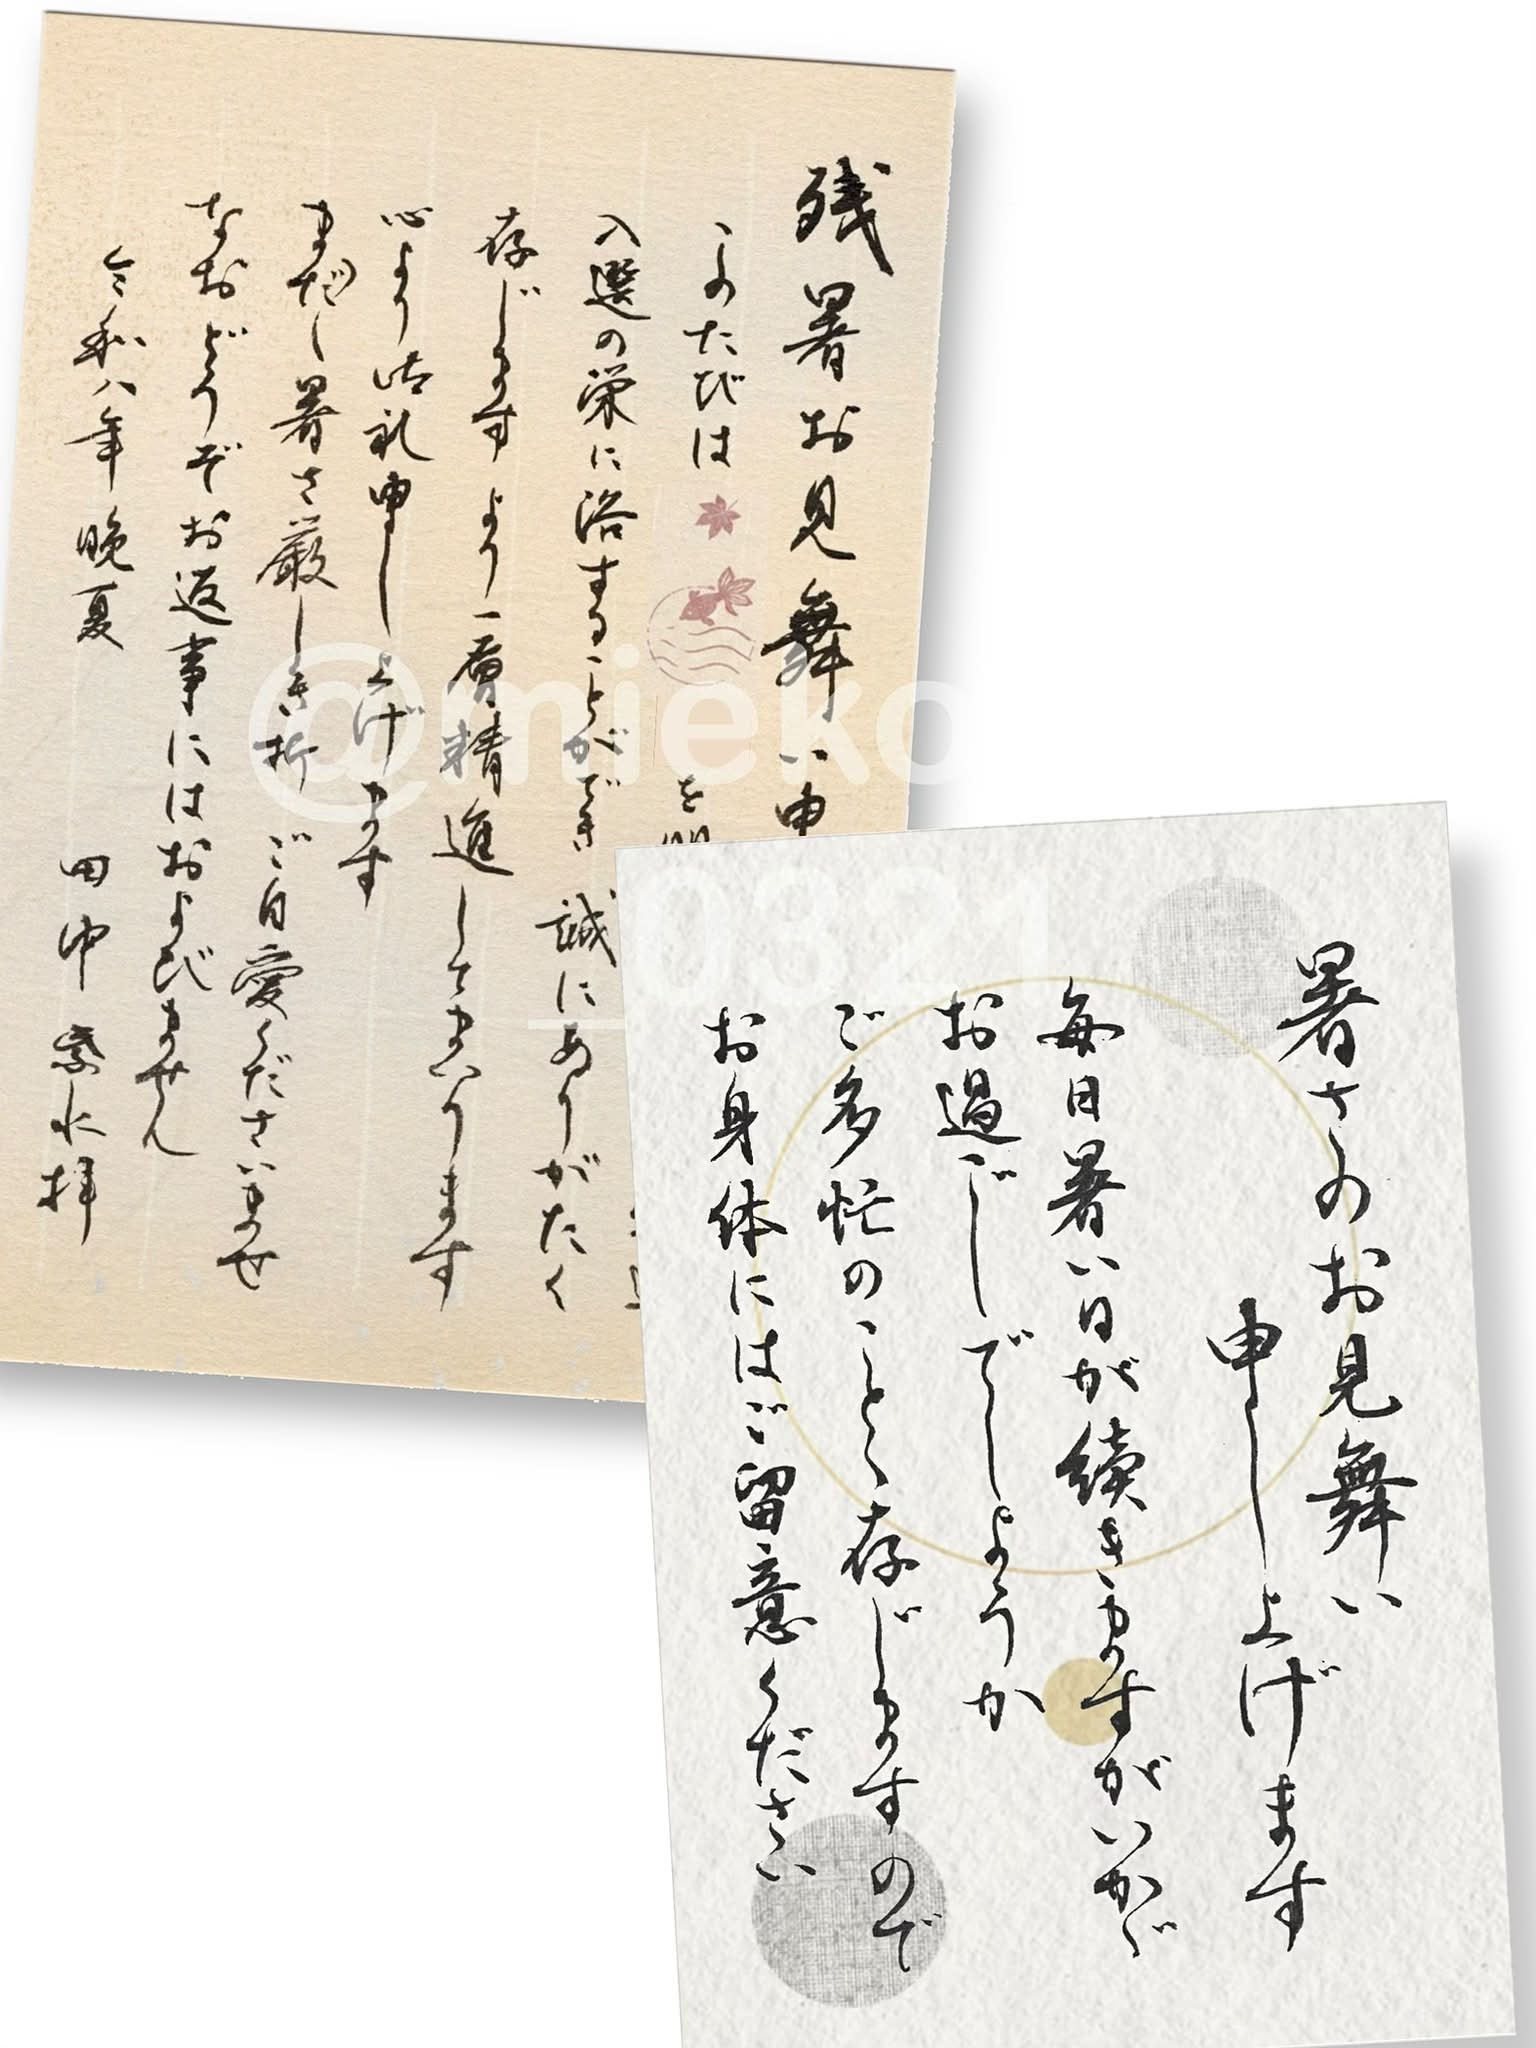 残暑お見舞い申
このたびは
を
入選の栄に浴することができ 誠にありがたく
存じます より一層精進してまいります
心より御礼申し上げます
まだまだ暑さ厳しき折 ご自愛くださいませ
なおどうぞお返事にはおよびません
令和八年 晩夏
田中 紫水 拝
暑さのお見舞い
申し上げます
毎日暑い日が続きますがいかが
お過ごしでしょうか
ご多忙のことゝ存じますので
お身体にはご留意ください
@mieko
_0321